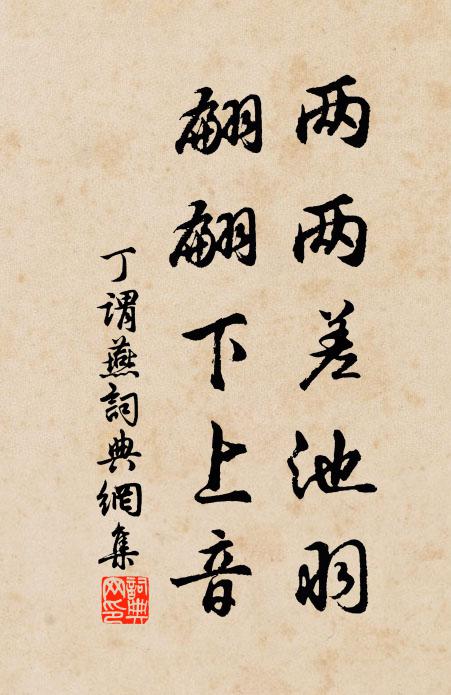 两两差池羽
翩翩下上音
丁谓燕詞典網集
詞典网印